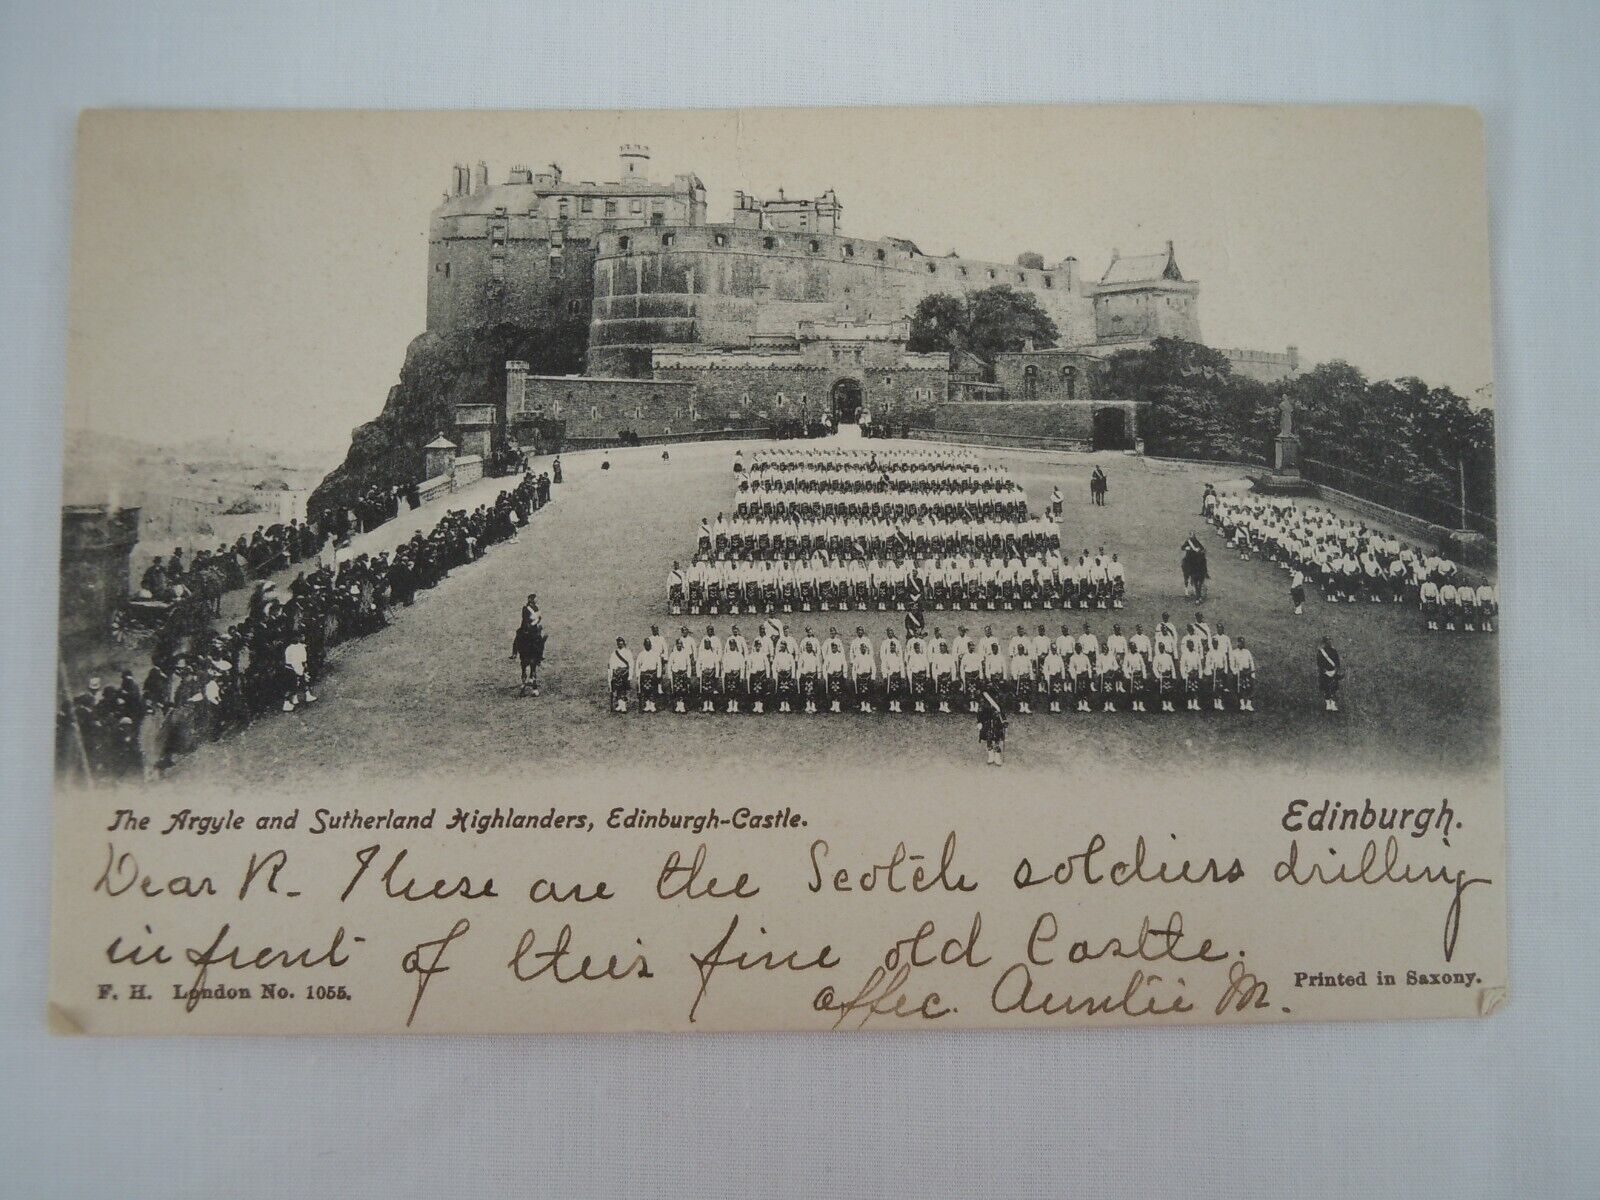 The Argyle and Sutherland Highlanders, Edinburgh-Castle.
Edinburgh.
Dear R. These are the Scotch soldiers drilling
in front of this fine old Castle.
affec. Auntie M.
F. H. London No. 1055.
Printed in Saxony.